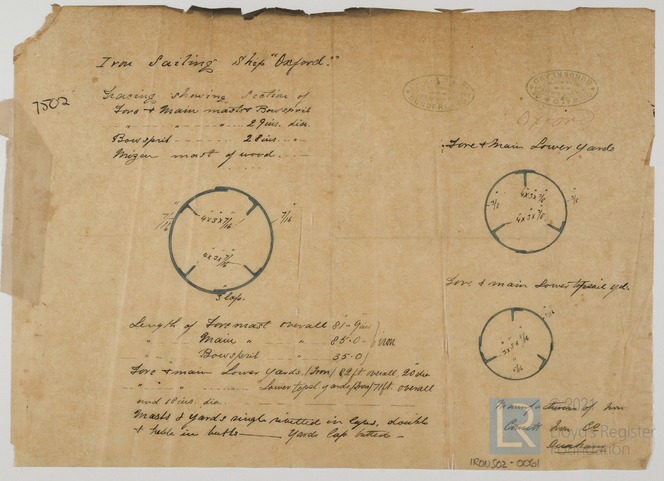 Iron Sailing Ship "Oxford."
7502
Tracing showing Section of
Fore & Main masts & Bowsprit
" " " 29 ins. dia.
Bowsprit 28 ins. "
Mizen mast of wood
7/16
4x3x7/16
7/16
3 laps.
Oxford
Fore & Main Lower Yards
4x3x7/16
4x3x7/16
Fore & main Lower topsail yds.
Length of Foremast overall 81-9 ins
" Main " " 85-0 Iron
" Bowsprit " 35-0
Fore & main Lower Yards (Iron) 82 ft overall 20 dia
" " " Lower topsl. yards (Iron) 71 ft. overall
and 18 ins. dia.
Masts & Yards single rivetted in edges, double
& treble in butts — Yards lap butted -
Manufacturers of Iron
Consett Iron Co
Durham
© 2021
Lloyd's Register
Foundation
LR
IRON502-0061